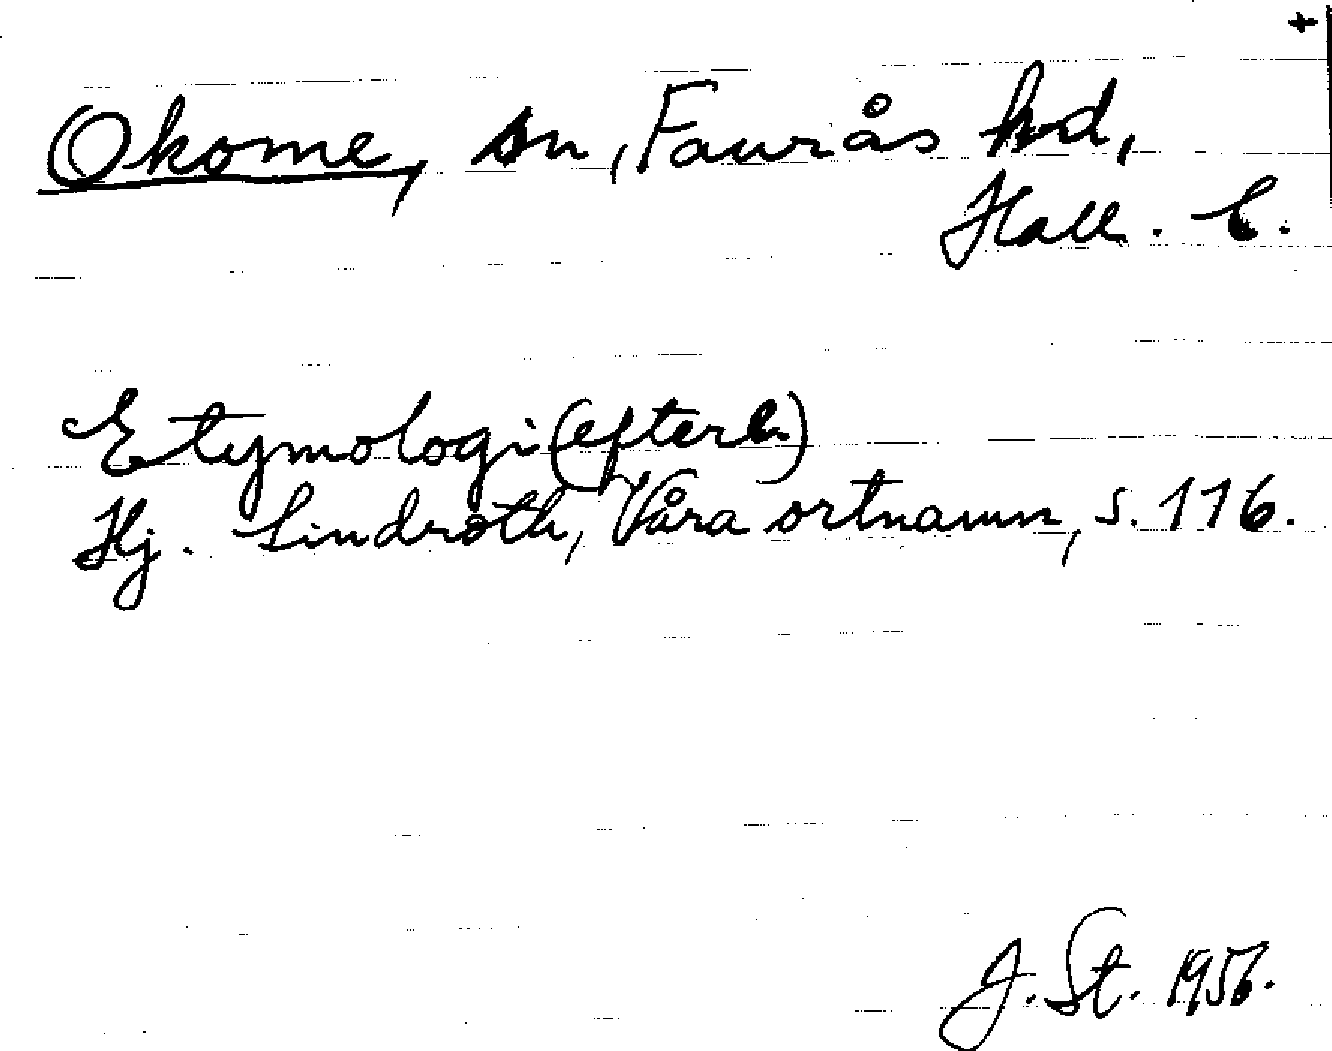 +
Okome, sn, Faurås hd,
Hall. l.
Etymologi (efterl.)
Hj. Lindroth, Våra ortnamn, s. 116.
J. St. 1956.